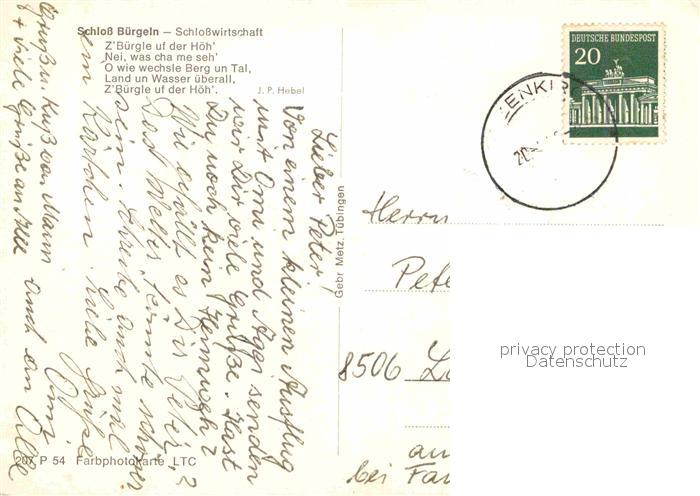 Schloß Bürgeln – Schloßwirtschaft
Z'Bürgle uf der Höh'
Nei, was cha me seh'
O wie wechsle Berg un Tal,
Land un Wasser überall,
Z'Bürgle uf der Höh'.
J. P. Hebel
Lieber Peter!
Von einem kleinen Ausflug
mit Omi und senden
wir Dir viele Grüße. Hast
Du noch kein Heimweh?
Wie gefällt es Dir
Das Wetter könnte schöner
sein. Schreibe auch mal
ein Kärtchen. Liebe Grüße
Omi
Gruß u. Kuß von Mami
+ viele Grüße an Alle
auch an
207 P 54 Farbphotokarte LTC
Gebr Metz, Tübingen
DEUTSCHE BUNDESPOST
20
ENKIR
20.
Herrn
Pete
8506
bei Fa
privacy protection
Datenschutz